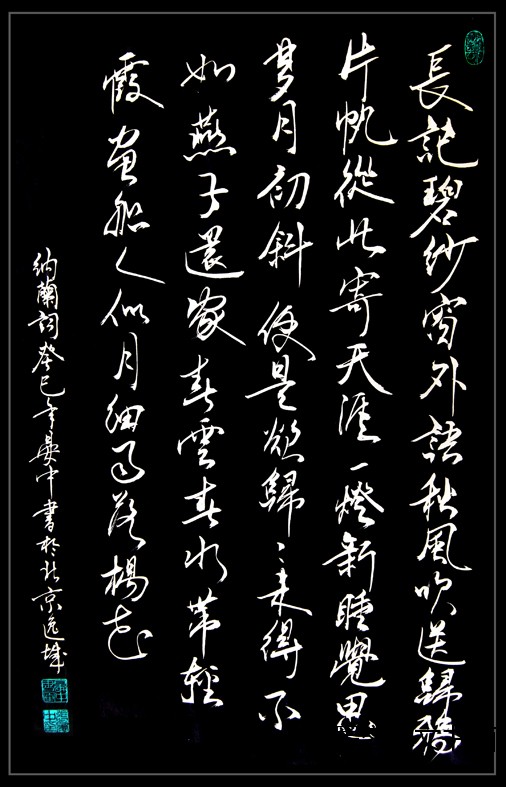 長記碧紗窗外語秋風吹送歸鴉
片帆從此寄天涯一燈新睡覺思
夢月初斜便是欲歸〻未得不
如燕子還家春雲春水帶輕
霞畫船人似月細雨落楊花
納蘭詞癸巳年晏中書於北京逸城